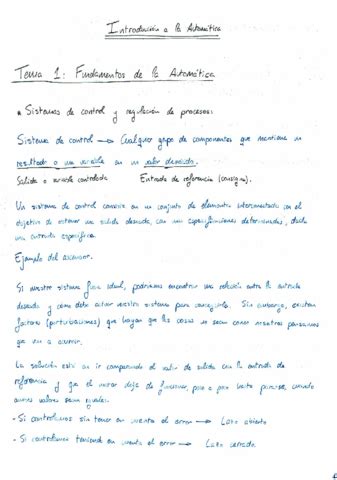 Introducción a la Automática
Tema 1: Fundamentos de la Automática
• Sistemas de control y regulación de procesos:
Sistema de control → Cualquier grupo de componentes que mantiene un
resultado o una variable en un valor deseado.
Salida o variable controlada Entrada de referencia (consigna).
Un sistema de control consiste en un conjunto de elementos interconectados con el
objetivo de obtener una salida deseada, con unas especificaciones determinadas, dada
una entrada específica.
Ejemplo del ascensor.
Si nuestro sistema fuera ideal, podríamos encontrar una relación entre la entrada
deseada y cómo debe actuar nuestro sistema para conseguirlo. Sin embargo, existen
factores (perturbaciones) que hagan que las cosas no sean como nosotros pensamos
que va a ocurrir.
La solución está en ir comparando el valor de salida con la entrada de
referencia y que el motor deje de funcionar, poco a poco hasta pararse, cuando
ambos valores sean iguales.
- Si controlamos sin tener en cuenta el error → Lazo abierto
- Si controlamos teniendo en cuenta el error → Lazo cerrado.